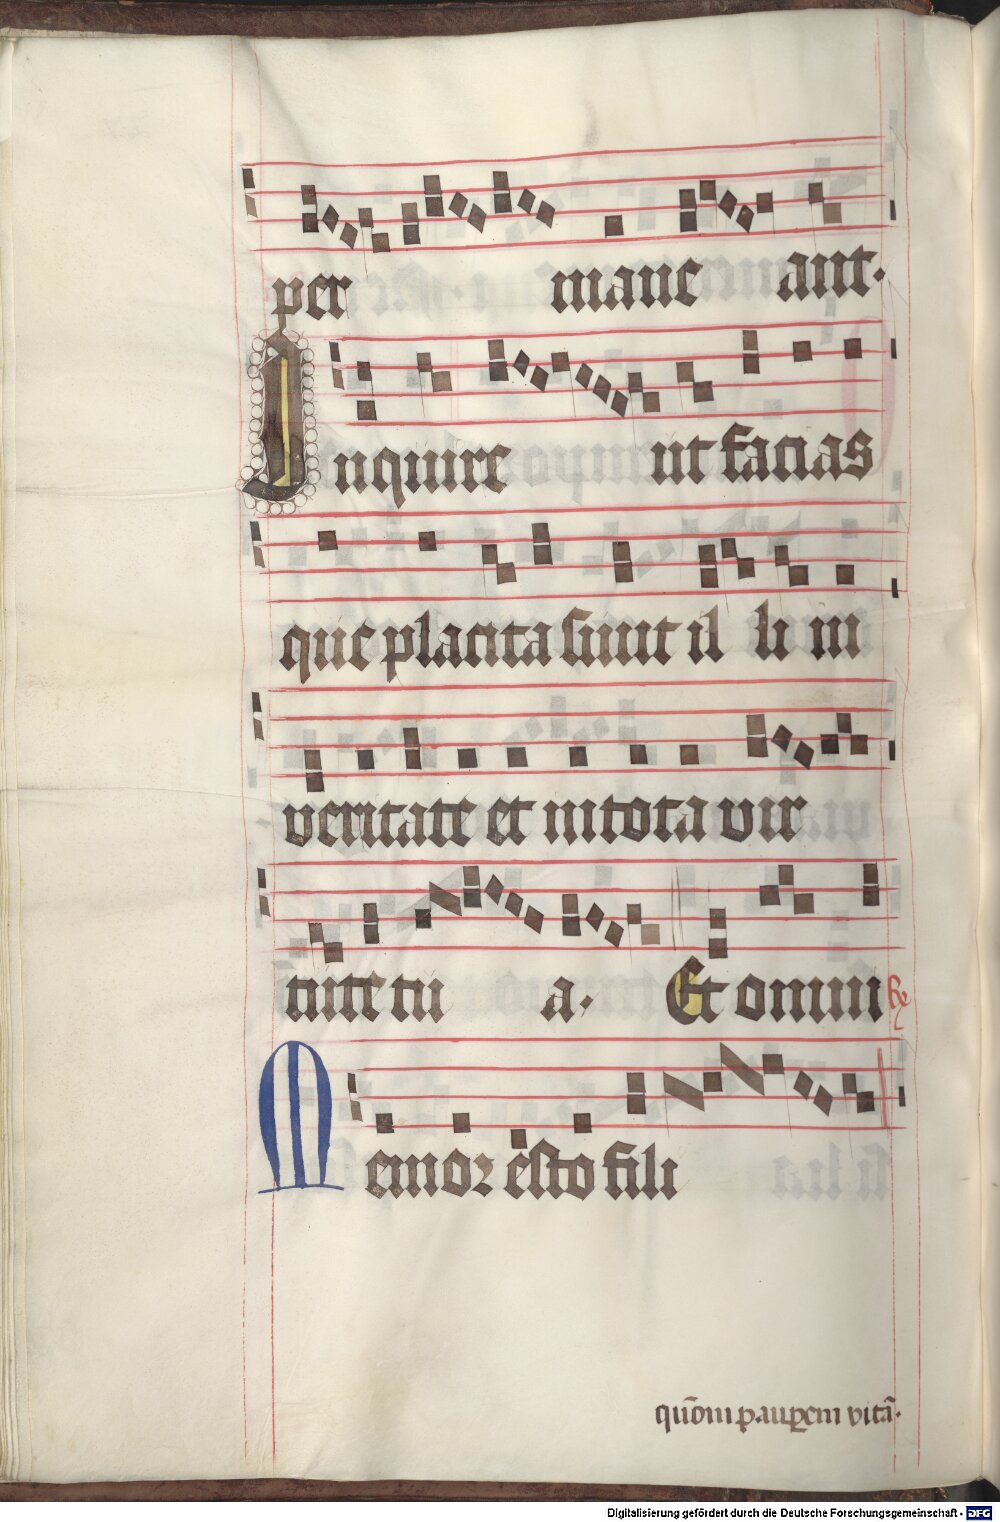 per mane ant.
Inquire ut facias
que placita sunt il li in
veritate et in tota vir
tute tu a. Et omni R
Memor esto fili
quōm pauperem vitā.
Digitalisierung gefördert durch die Deutsche Forschungsgemeinschaft - DFG